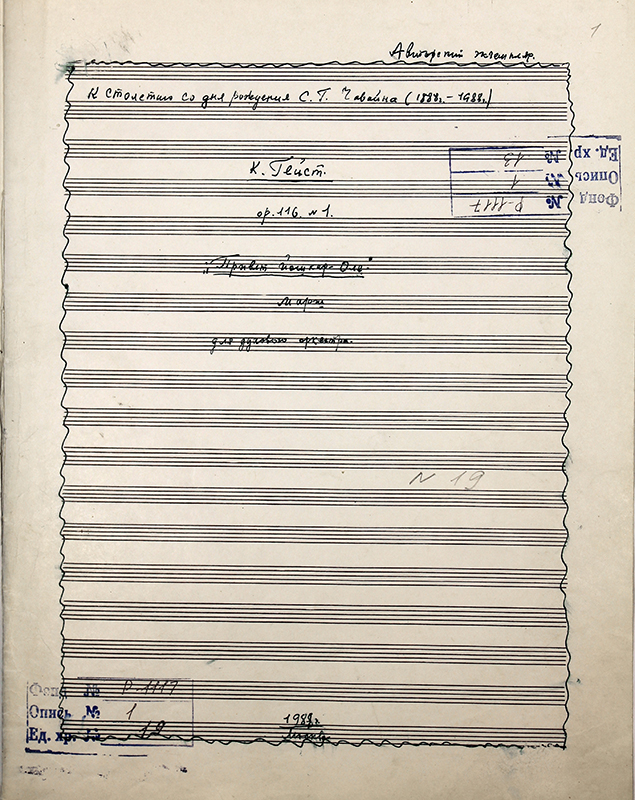 1
Авторский экземпляр.
К столетию со дня рождения С. Г. Чавайна (1888г. – 1988г.)
К. Гейст.
ор. 116. №1.
"Привет Йошкар-Оле"
Марш
для духового оркестра.
Фонд № Р-1117
Опись № 1
Ед. хр. № 13
N 19
Фонд № Р-1117
Опись № 1
Ед. хр. № 12
1988г.